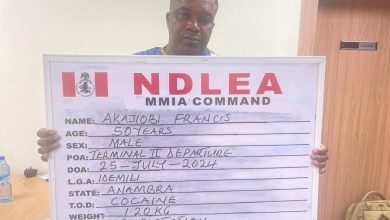 NDLEA
MMIA COMMAND
NAME: AKAJIOBI FRANCIS
AGE: 50 YEARS
SEX: MALE
POA: TERMINAL II DEPARTURE
DOA: 25-JULY-2024
L.G.A IDEMILI
STATE: ANAMBRA
T.O.D: COCAINE
WEIGHT